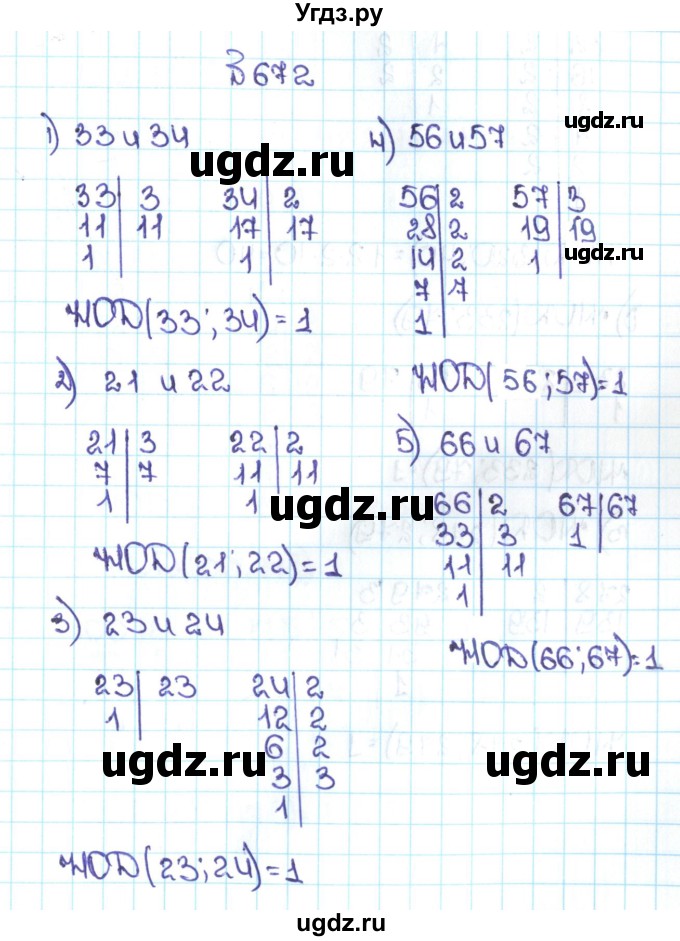 Угдз.ру
В 672
1) 33 и 34
33 | 3   34 | 2
11 | 11   17 | 17
1 |   1 |
НОД(33; 34) = 1
2) 21 и 22
21 | 3   22 | 2
7 | 7   11 | 11
1 |   1 |
НОД(21; 22) = 1
3) 23 и 24
23 | 23   24 | 2
1 |   12 | 2
6 | 2
3 | 3
1 |
НОД(23; 24) = 1
4) 56 и 57
56 | 2   57 | 3
28 | 2   19 | 19
14 | 2   1 |
7 | 7
1 |
НОД(56; 57) = 1
5) 66 и 67
66 | 2   67 | 67
33 | 3   1 |
11 | 11
1 |
НОД(66; 67) = 1
ugdz.ru
ugdz.ru
ugdz.ru
ugdz.ru
ugdz.ru
ugdz.ru
ugdz.ru
ugdz.ru
ugdz.ru